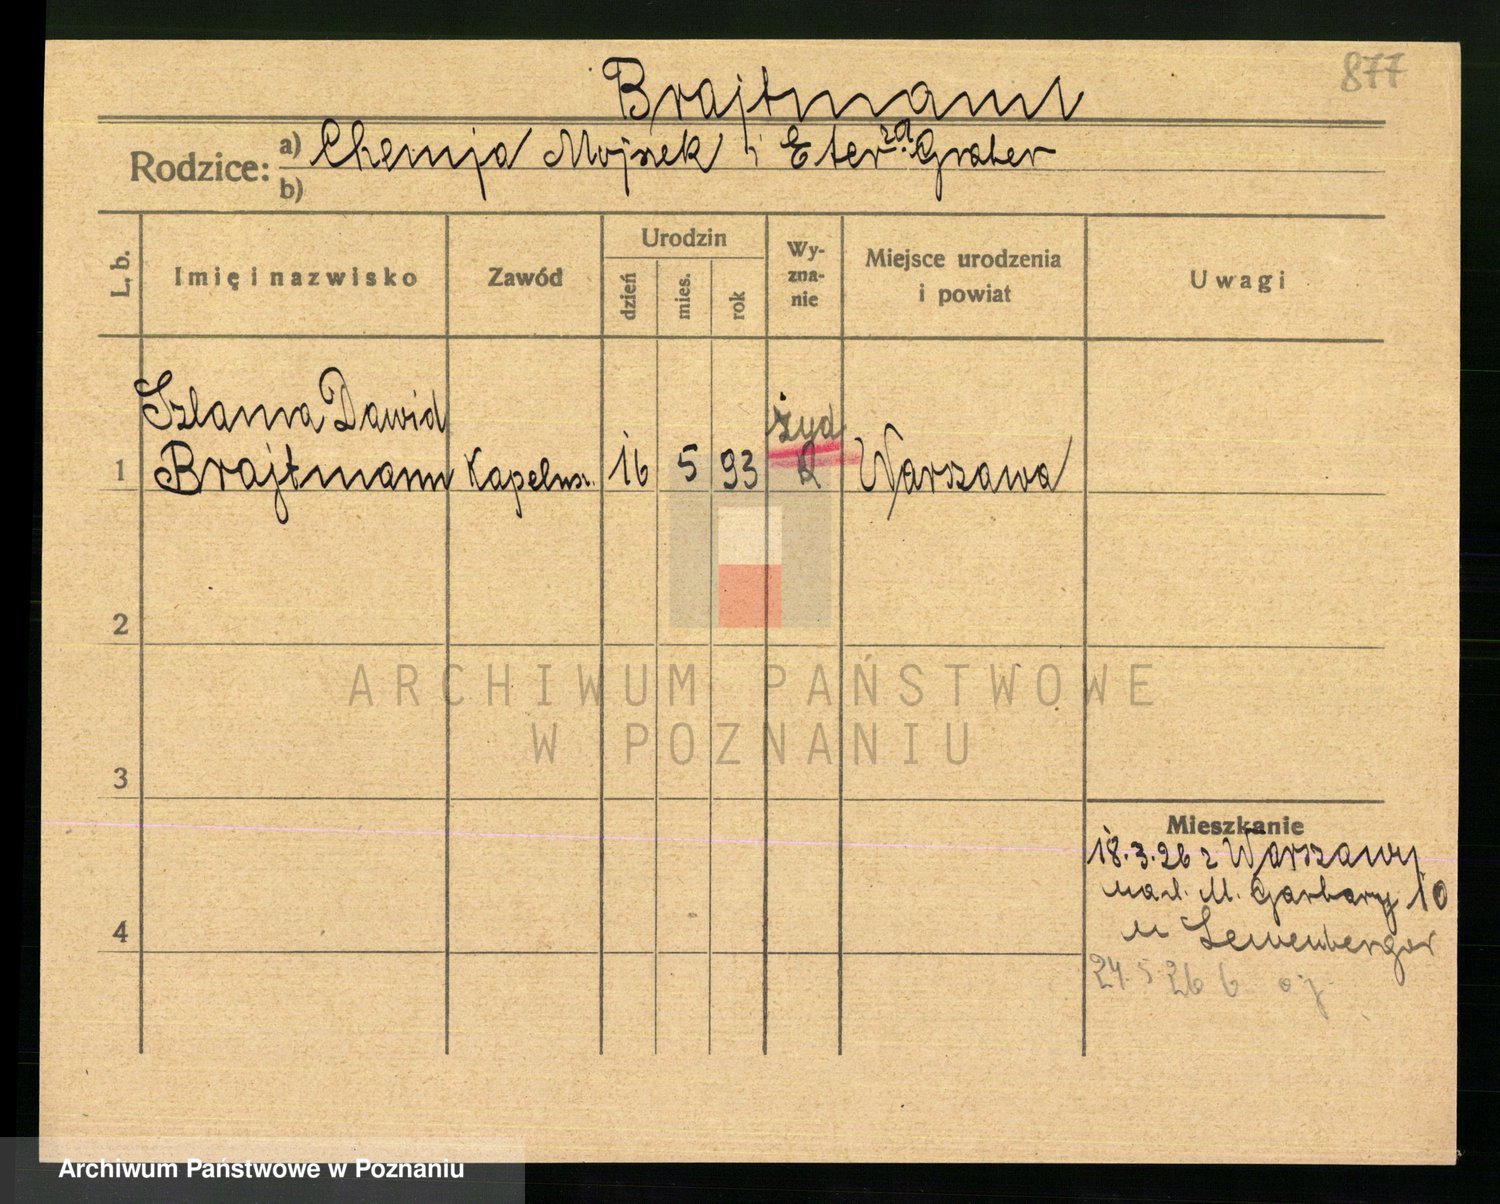 877
Brajtmann
Rodzice: a) Chemja Mojsek i Eter z d. Graber
b)
L. b.
Imię i nazwisko
Zawód
Urodzin
dzień
mies.
rok
Wy-
zna-
nie
Miejsce urodzenia
i powiat
Uwagi
Szlama Dawid
żyd
1 Brajtmann Kapelusz. 16 5 93 Warszawa
2
ARCHIWUM PAŃSTWOWE
W POZNANIU
3
Mieszkanie
18.3.26 z Warszawy
M. Garbary 10
u Lewenberger
4
24.5.26
Archiwum Państwowe w Poznaniu